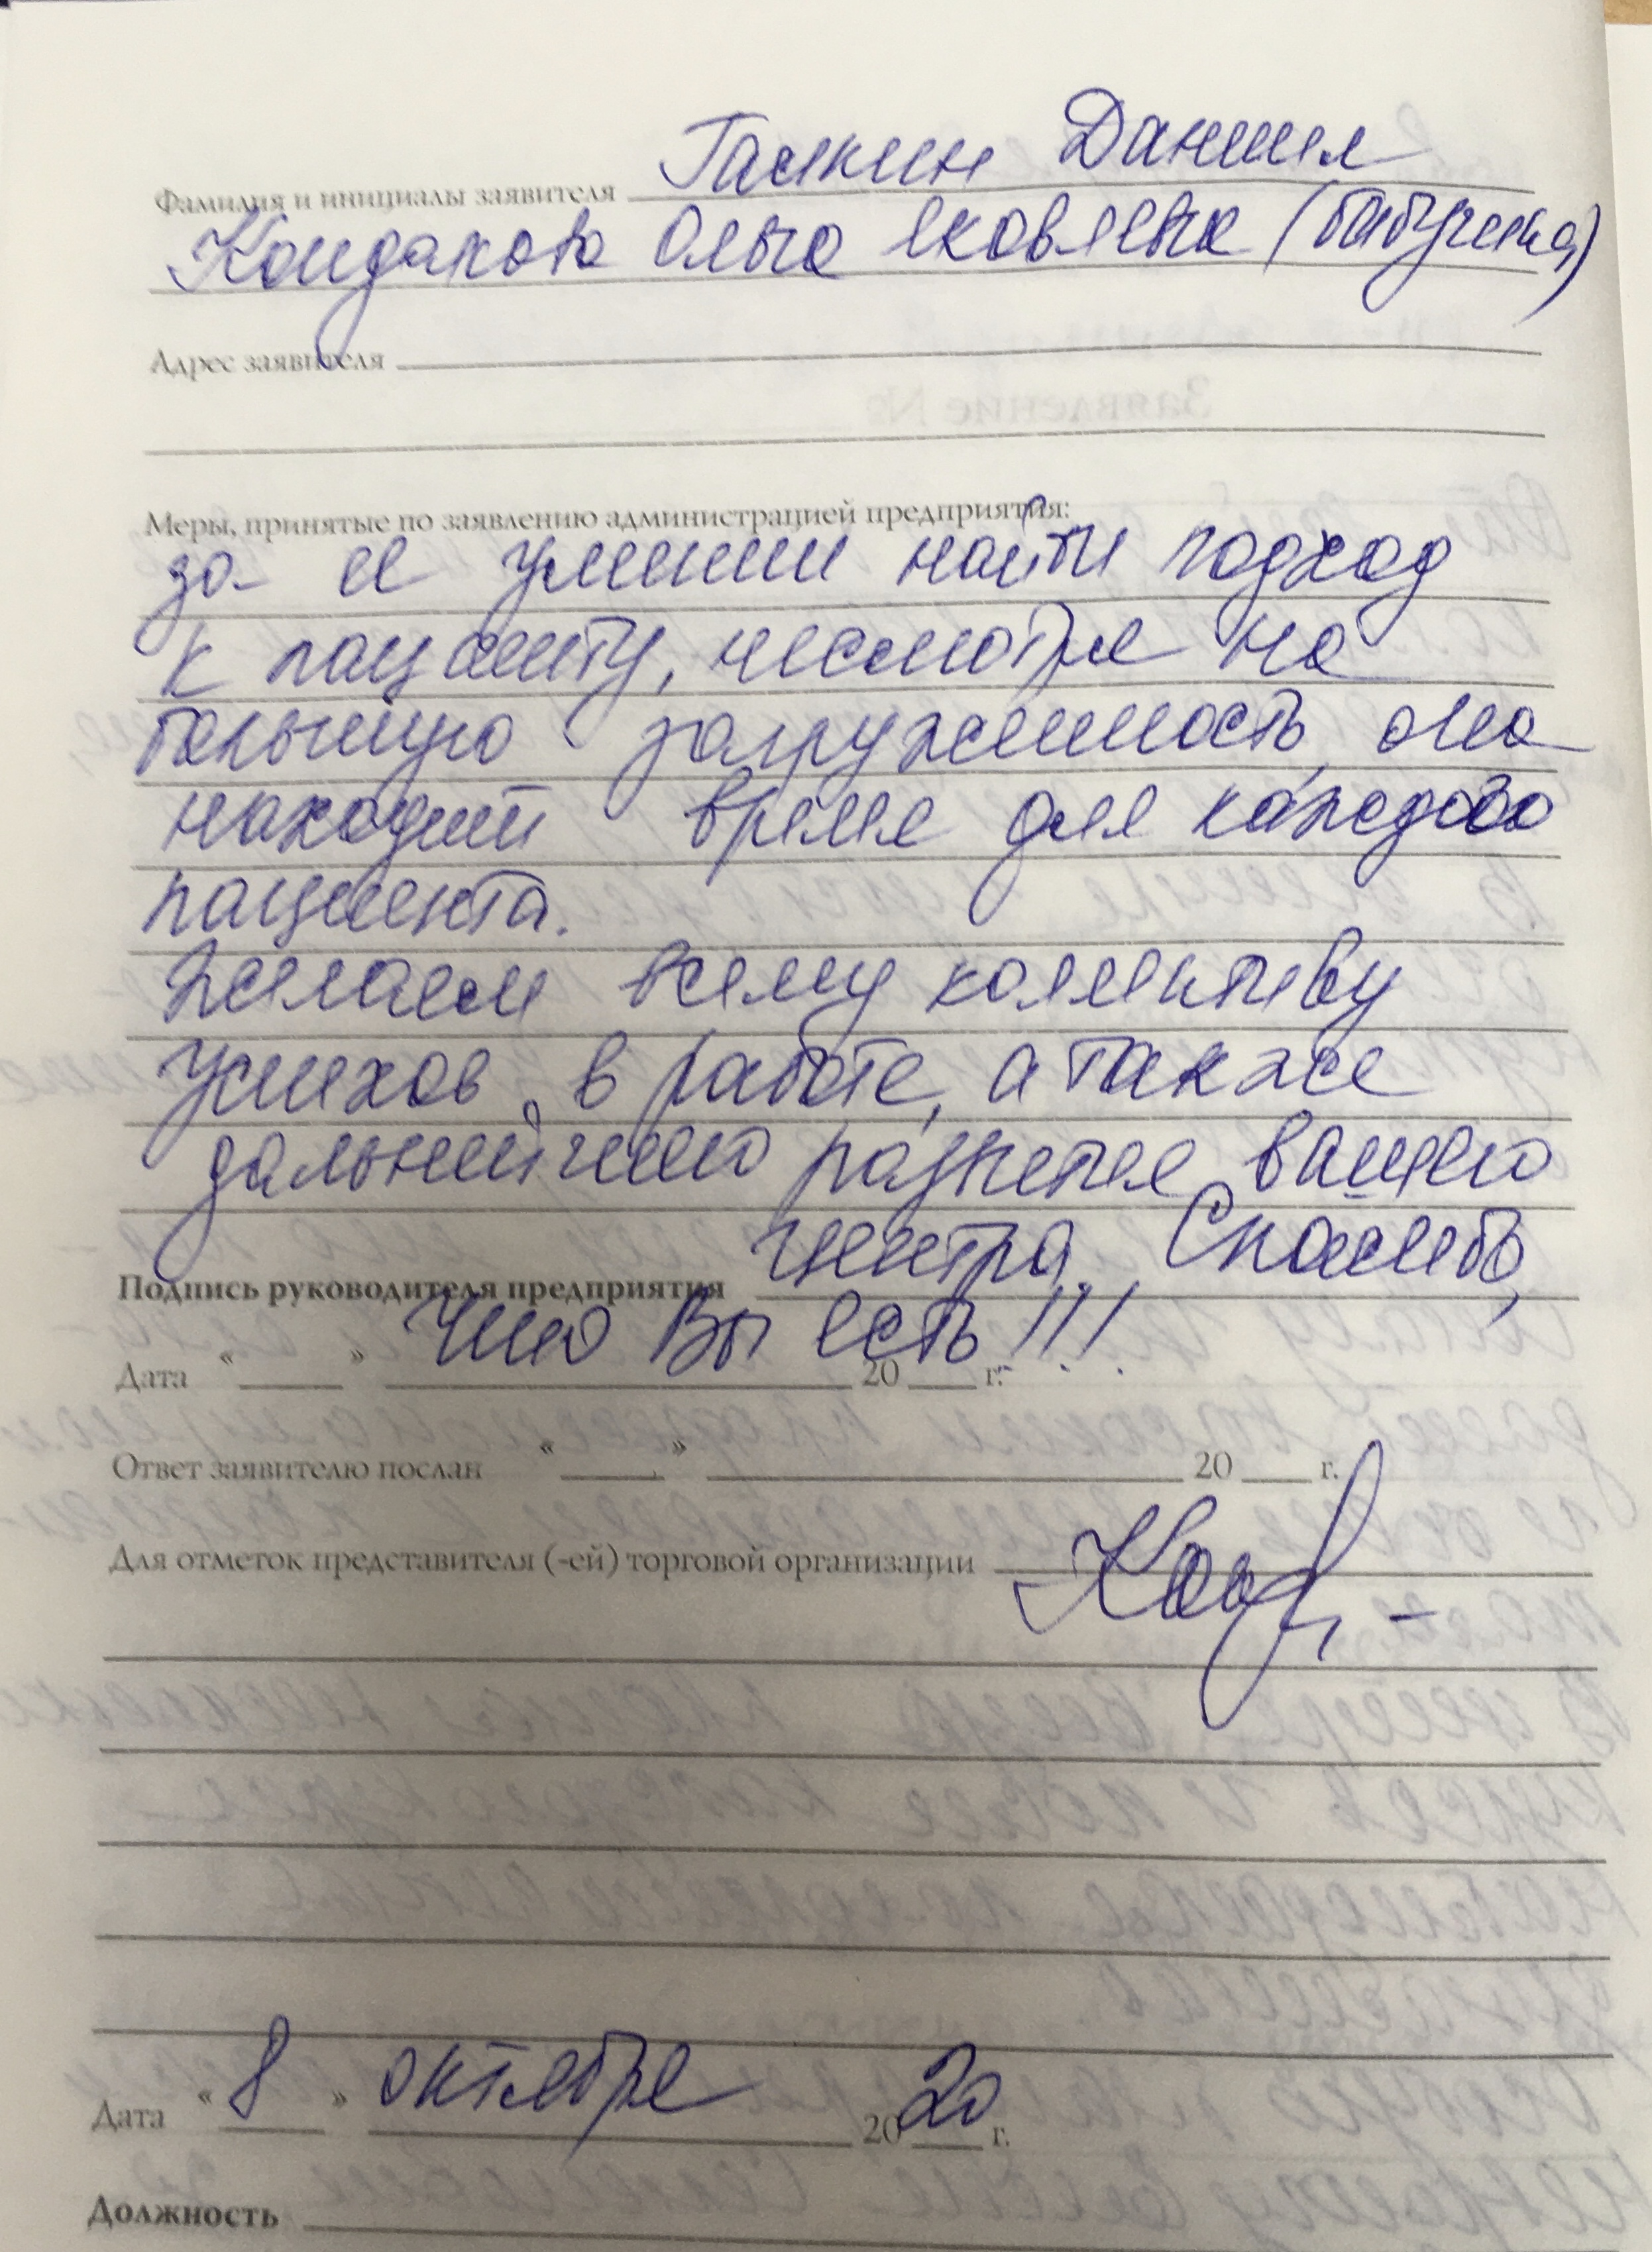 Фамилия и инициалы заявителя Галкин Даниил
Кондакова Ольга Яковлевна (бабушка)
Адрес заявителя
Меры, принятые по заявлению администрацией предприятия:
за её умении найти подход
к пациенту, несмотря на
большую загруженность, она
находит время для каждого
пациента.
Желаем всему коллективу
успехов в работе, а также
дальнейшего развития вашего
центра. Спасибо,
Подпись руководителя предприятия
что Вы есть!!!
Дата « » 20 г.
Ответ заявителю послан « » 20 г.
Для отметок представителя (-ей) торговой организации
Дата « 8 » октября 2020 г.
Должность